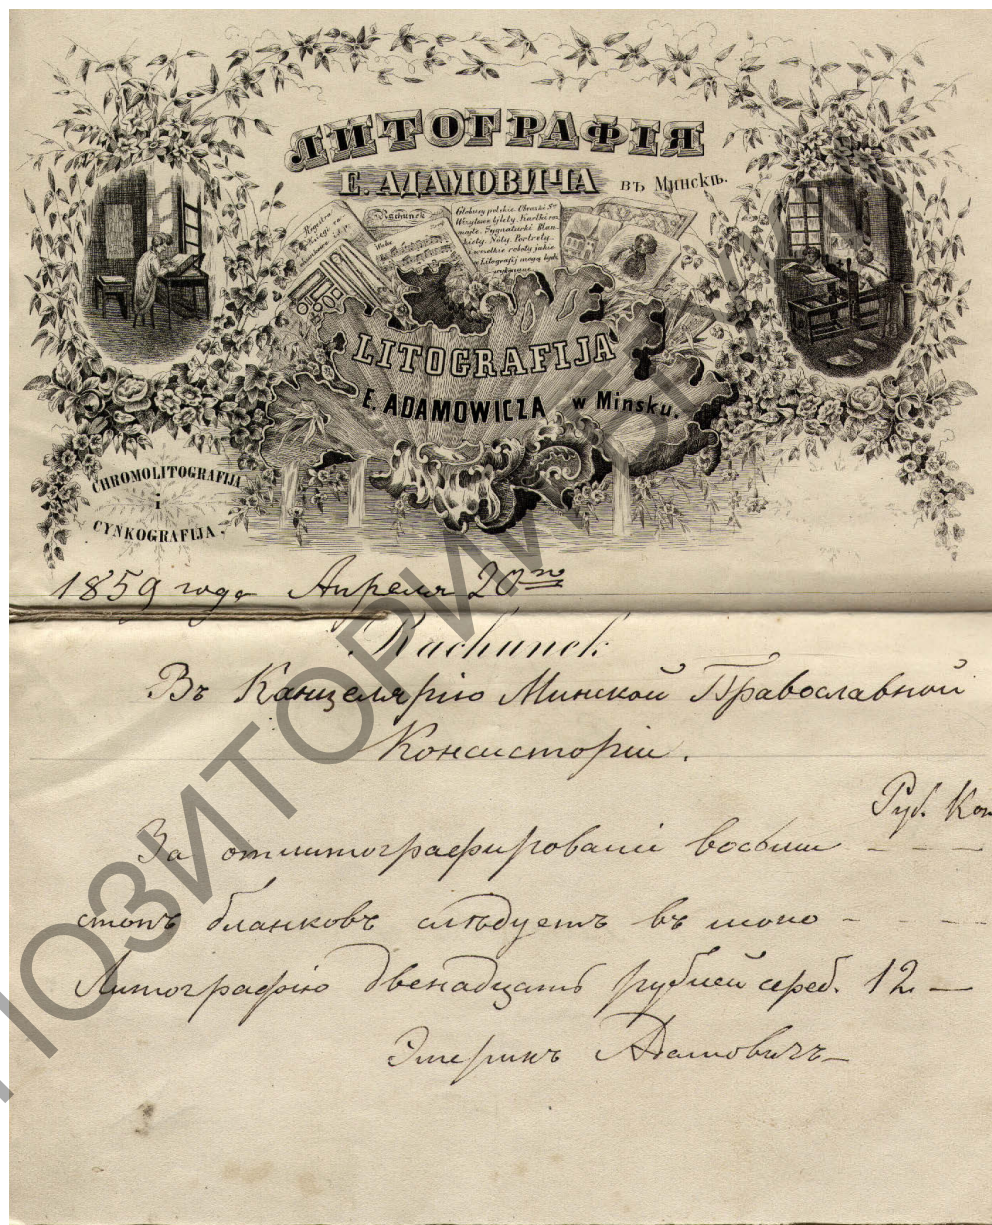 ЛИТОГРАФІЯ
Е. АДАМОВИЧА въ Минскѣ.
Rachunek
Globusy polskie. Obrazki Śte
Wizytowe bilety. Kartki roz
maite. Sygnaturki. Blan
kiety. Nóty. Portrety.
i wszelkie roboty jakie
w Litografij mogą być
wykonane.
LITOGRAFIJA
E. ADAMOWICZA w Minsku.
CHROMOLITOGRAFIJA
i
CYNKOGRAFIJA.
1859 года Апреля 20го
Rachunek
Въ Канцелярію Минской Православной
Консисторіи.
Руб. Коп
За отлитографированіе восьми
стопъ бланковъ слѣдуетъ въ мою
Литографію двенадцать рублей сереб. 12 —
Эмерикъ Адамовичъ
ПОЗИТОРИЙ